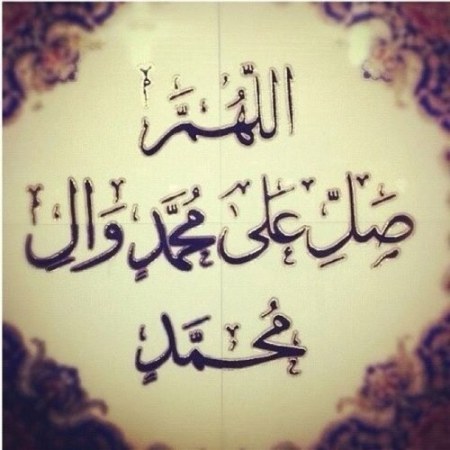 اللَّهُمَّ
صَلِّ عَلَى مُحَمَّدٍ وَالِ
مُحَمَّدٍ